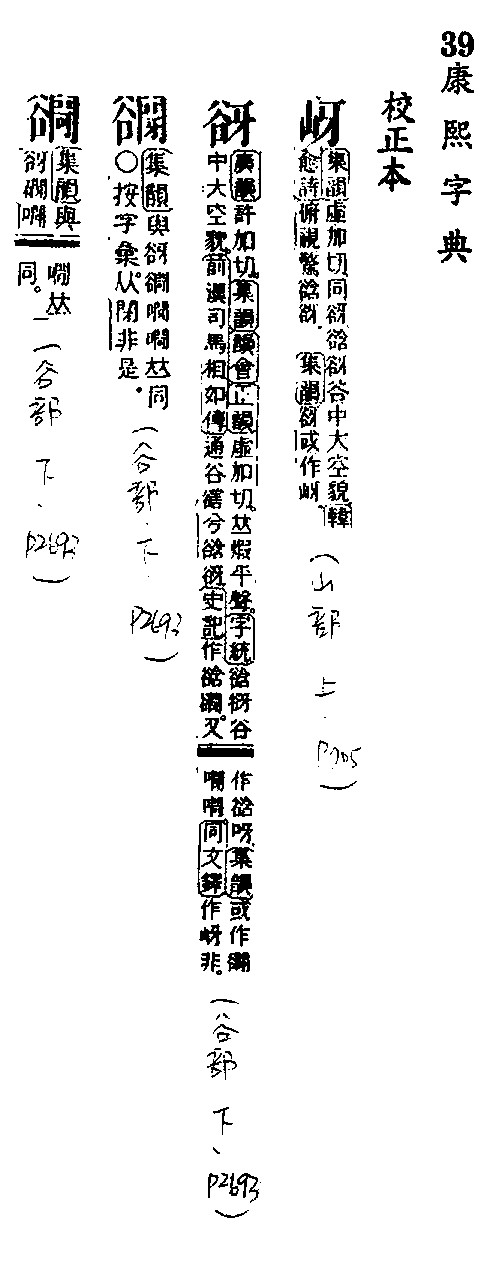 39 康熙字典
校正本
岈
集韻虛加切同谺谽谺谷中大空貌韓
愈詩俯視驚谽谺 集韻谺或作
(山部 上.
谺
廣韻許加切。集韻韻會正韻虛加切。𠀤蝦平聲。字統谽谺谷
中大空貌。前漢司馬相如傳通谷豁兮谽谺史記作谽 。又
作谽呀。集韻或作
同文鐸作岈非。
(谷部 下、P2693)
集韻與谺 𠀤同
○按字彙从閉非是。
(谷部.下.P2693)
集韻與
谺
𠀤
同。
(谷部 下.P2693)